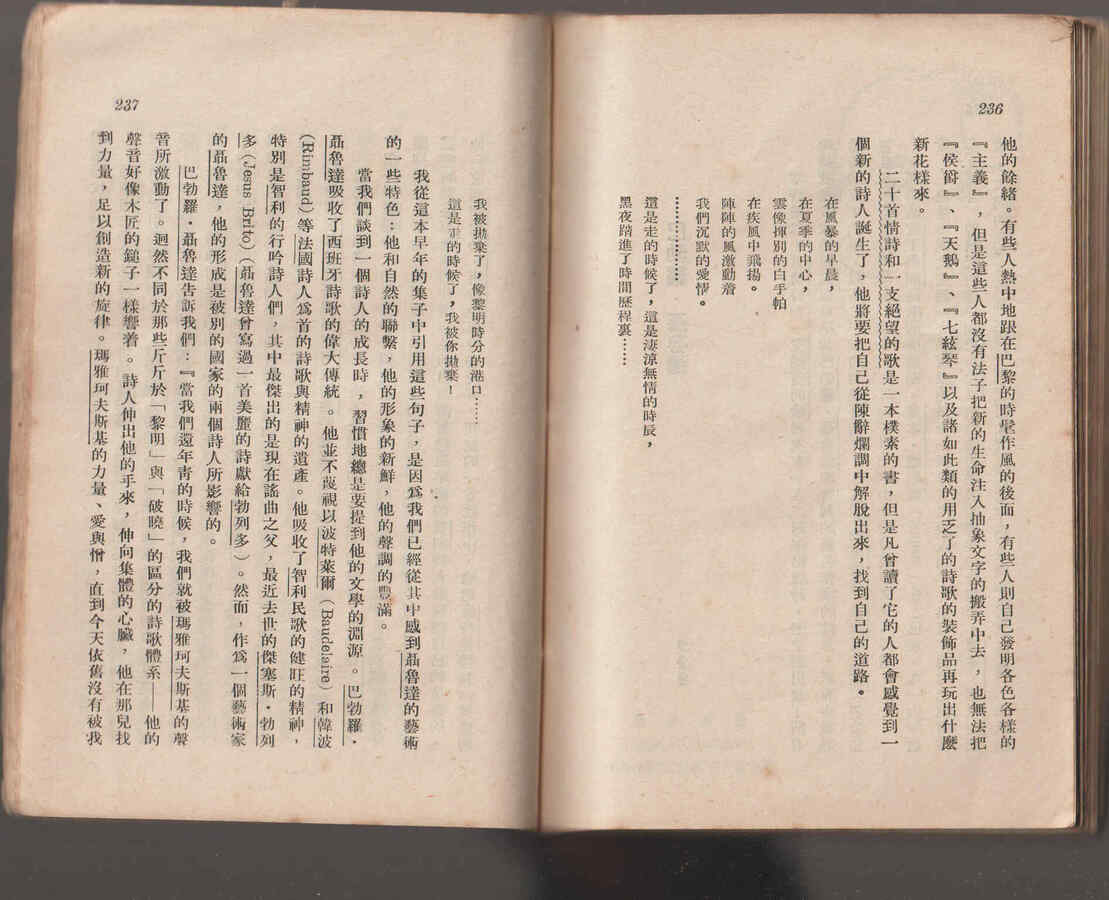 236
他的餘緒。有些人熱中地跟在巴黎的時髦作風的後面，有些人則自己發明各色各樣的
『主義』，但是這些人都沒有法子把新的生命注入抽象文字的搬弄中去，也無法把
『侯爵』、『天鵝』、『七絃琴』以及諸如此類的用乏了的詩歌的裝飾品再玩出什麼
新花樣來。
二十首情詩和一支絕望的歌是一本樸素的書，但是凡曾讀了它的人都會感覺到一
個新的詩人誕生了，他將要把自己從陳辭爛調中解脫出來，找到自己的道路。
在風暴的早晨，
在夏季的中心，
雲像揮別的白手帕
在疾風中飛揚。
陣陣的風激動着
我們沉默的愛情。
…………………
這是走的時候了，這是淒涼無情的時辰，
黑夜踏進了時間歷程裏……
237
我被拋棄了，像黎明時分的港口……
這是走的時候了，我被你拋棄！
我從這本早年的集子中引用這些句子，是因爲我們已經從其中感到聶魯達的藝術
的一些特色：他和自然的聯繫，他的形象的新鮮，他的聲調的豐滿。
當我們談到一個詩人的成長時，習慣地總是要提到他的文學的淵源。巴勃羅·
聶魯達吸收了西班牙詩歌的偉大傳統。他並不蔑視以波特萊爾（Baudelaire）和韓波
（Rimbaud）等法國詩人爲首的詩歌與精神的遺產。他吸收了智利民歌的健旺的精神，
特別是智利的行吟詩人們，其中最傑出的是現在謠曲之父，最近去世的傑塞斯·勃列
多（Jesus Brito）（聶魯達曾寫過一首美麗的詩獻給勃列多）。然而，作爲一個藝術家
的聶魯達，他的形成是被別的國家的兩個詩人所影響的。
巴勃羅·聶魯達告訴我們：『當我們還年靑的時候，我們就被瑪雅珂夫斯基的聲
音所激動了。迥然不同於那些斤斤於「黎明」與「破曉」的區分的詩歌體系——他的
聲音好像木匠的鎚子一樣響着。詩人伸出他的手來，伸向集體的心臟，他在那兒找
到力量，足以創造新的旋律。瑪雅珂夫斯基的力量、愛與憎，直到今天依舊沒有被我